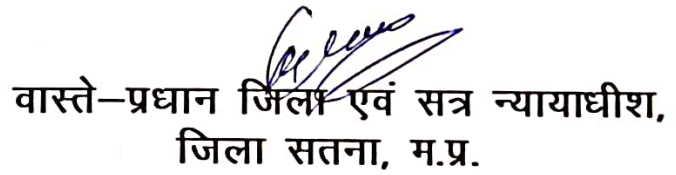 वास्ते–प्रधान जिला एवं सत्र न्यायाधीश,
जिला सतना, म.प्र.